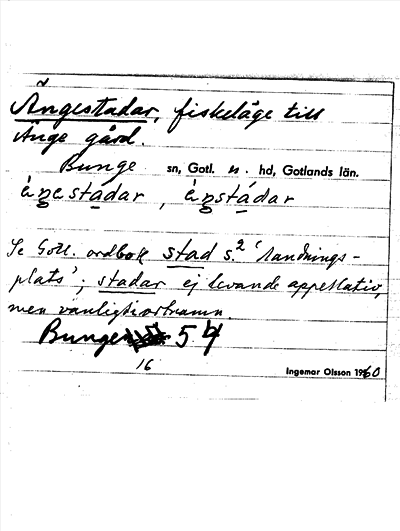 Ängestadar, fiskeläge till
Änge gård.
Bunge sn, Gotl. n. hd, Gotlands län.
Se Gotl. ordbok stad s.2 'landnings-
plats', stadar ej levande appellativ,
men vanligt i ortnamn.
Bunge 54
16
Ingemar Olsson 1960